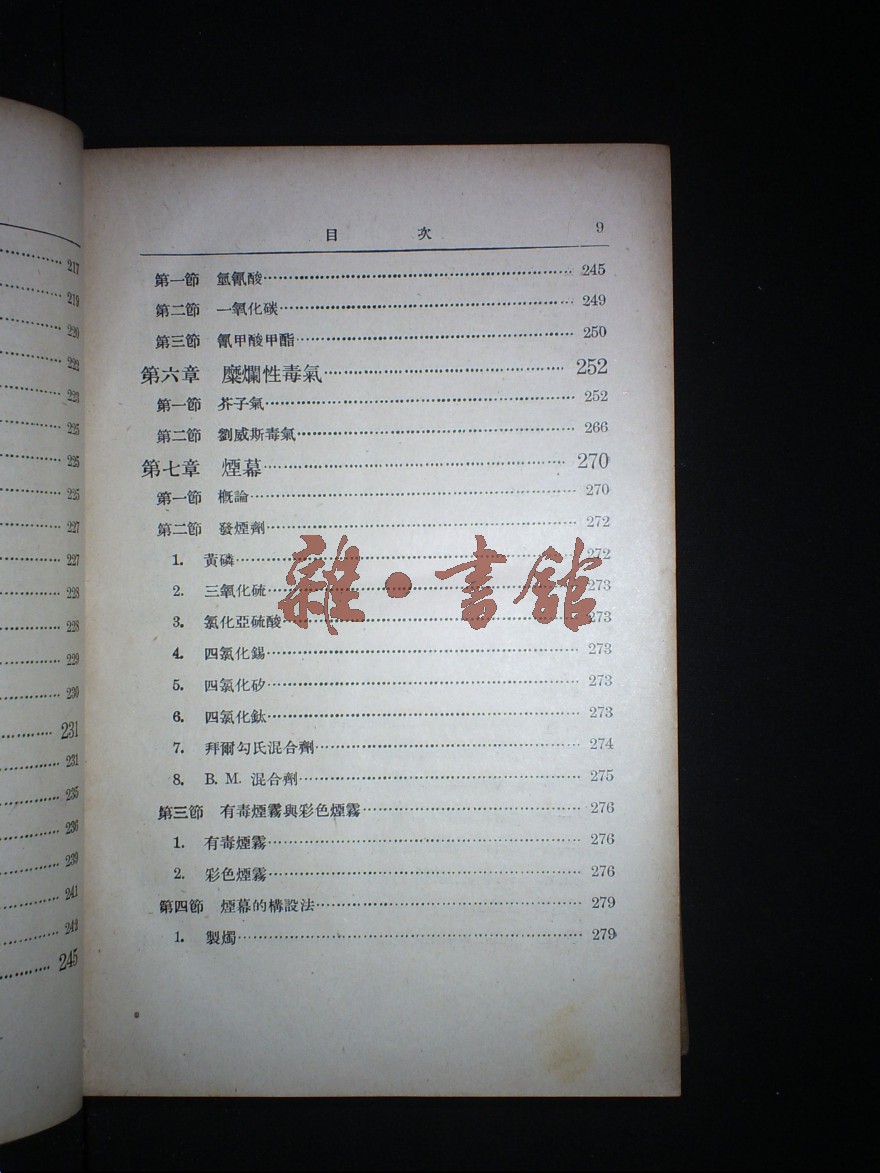 217
219
220
222
223
225
225
225
227
227
228
228
229
230
231
231
235
236
239
241
242
245
目 次 9
第一節 氫氰酸 245
第二節 一氧化碳 249
第三節 氰甲酸甲酯 250
第六章 糜爛性毒氣 252
第一節 芥子氣 252
第二節 劉威斯毒氣 266
第七章 煙幕 270
第一節 概論 270
第二節 發煙劑 272
1. 黃磷 272
2. 三氧化硫 273
3. 氯化亞硫酸 273
4. 四氯化錫 273
5. 四氯化矽 273
6. 四氯化鈦 273
7. 拜爾勾氏混合劑 274
8. B. M. 混合劑 275
第三節 有毒煙霧與彩色煙霧 276
1. 有毒煙霧 276
2. 彩色煙霧 276
第四節 煙幕的構設法 279
1. 製燭 279
雜·書館